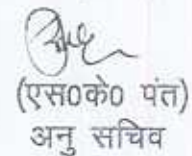 (एस0के0 पंत)
अनु सचिव